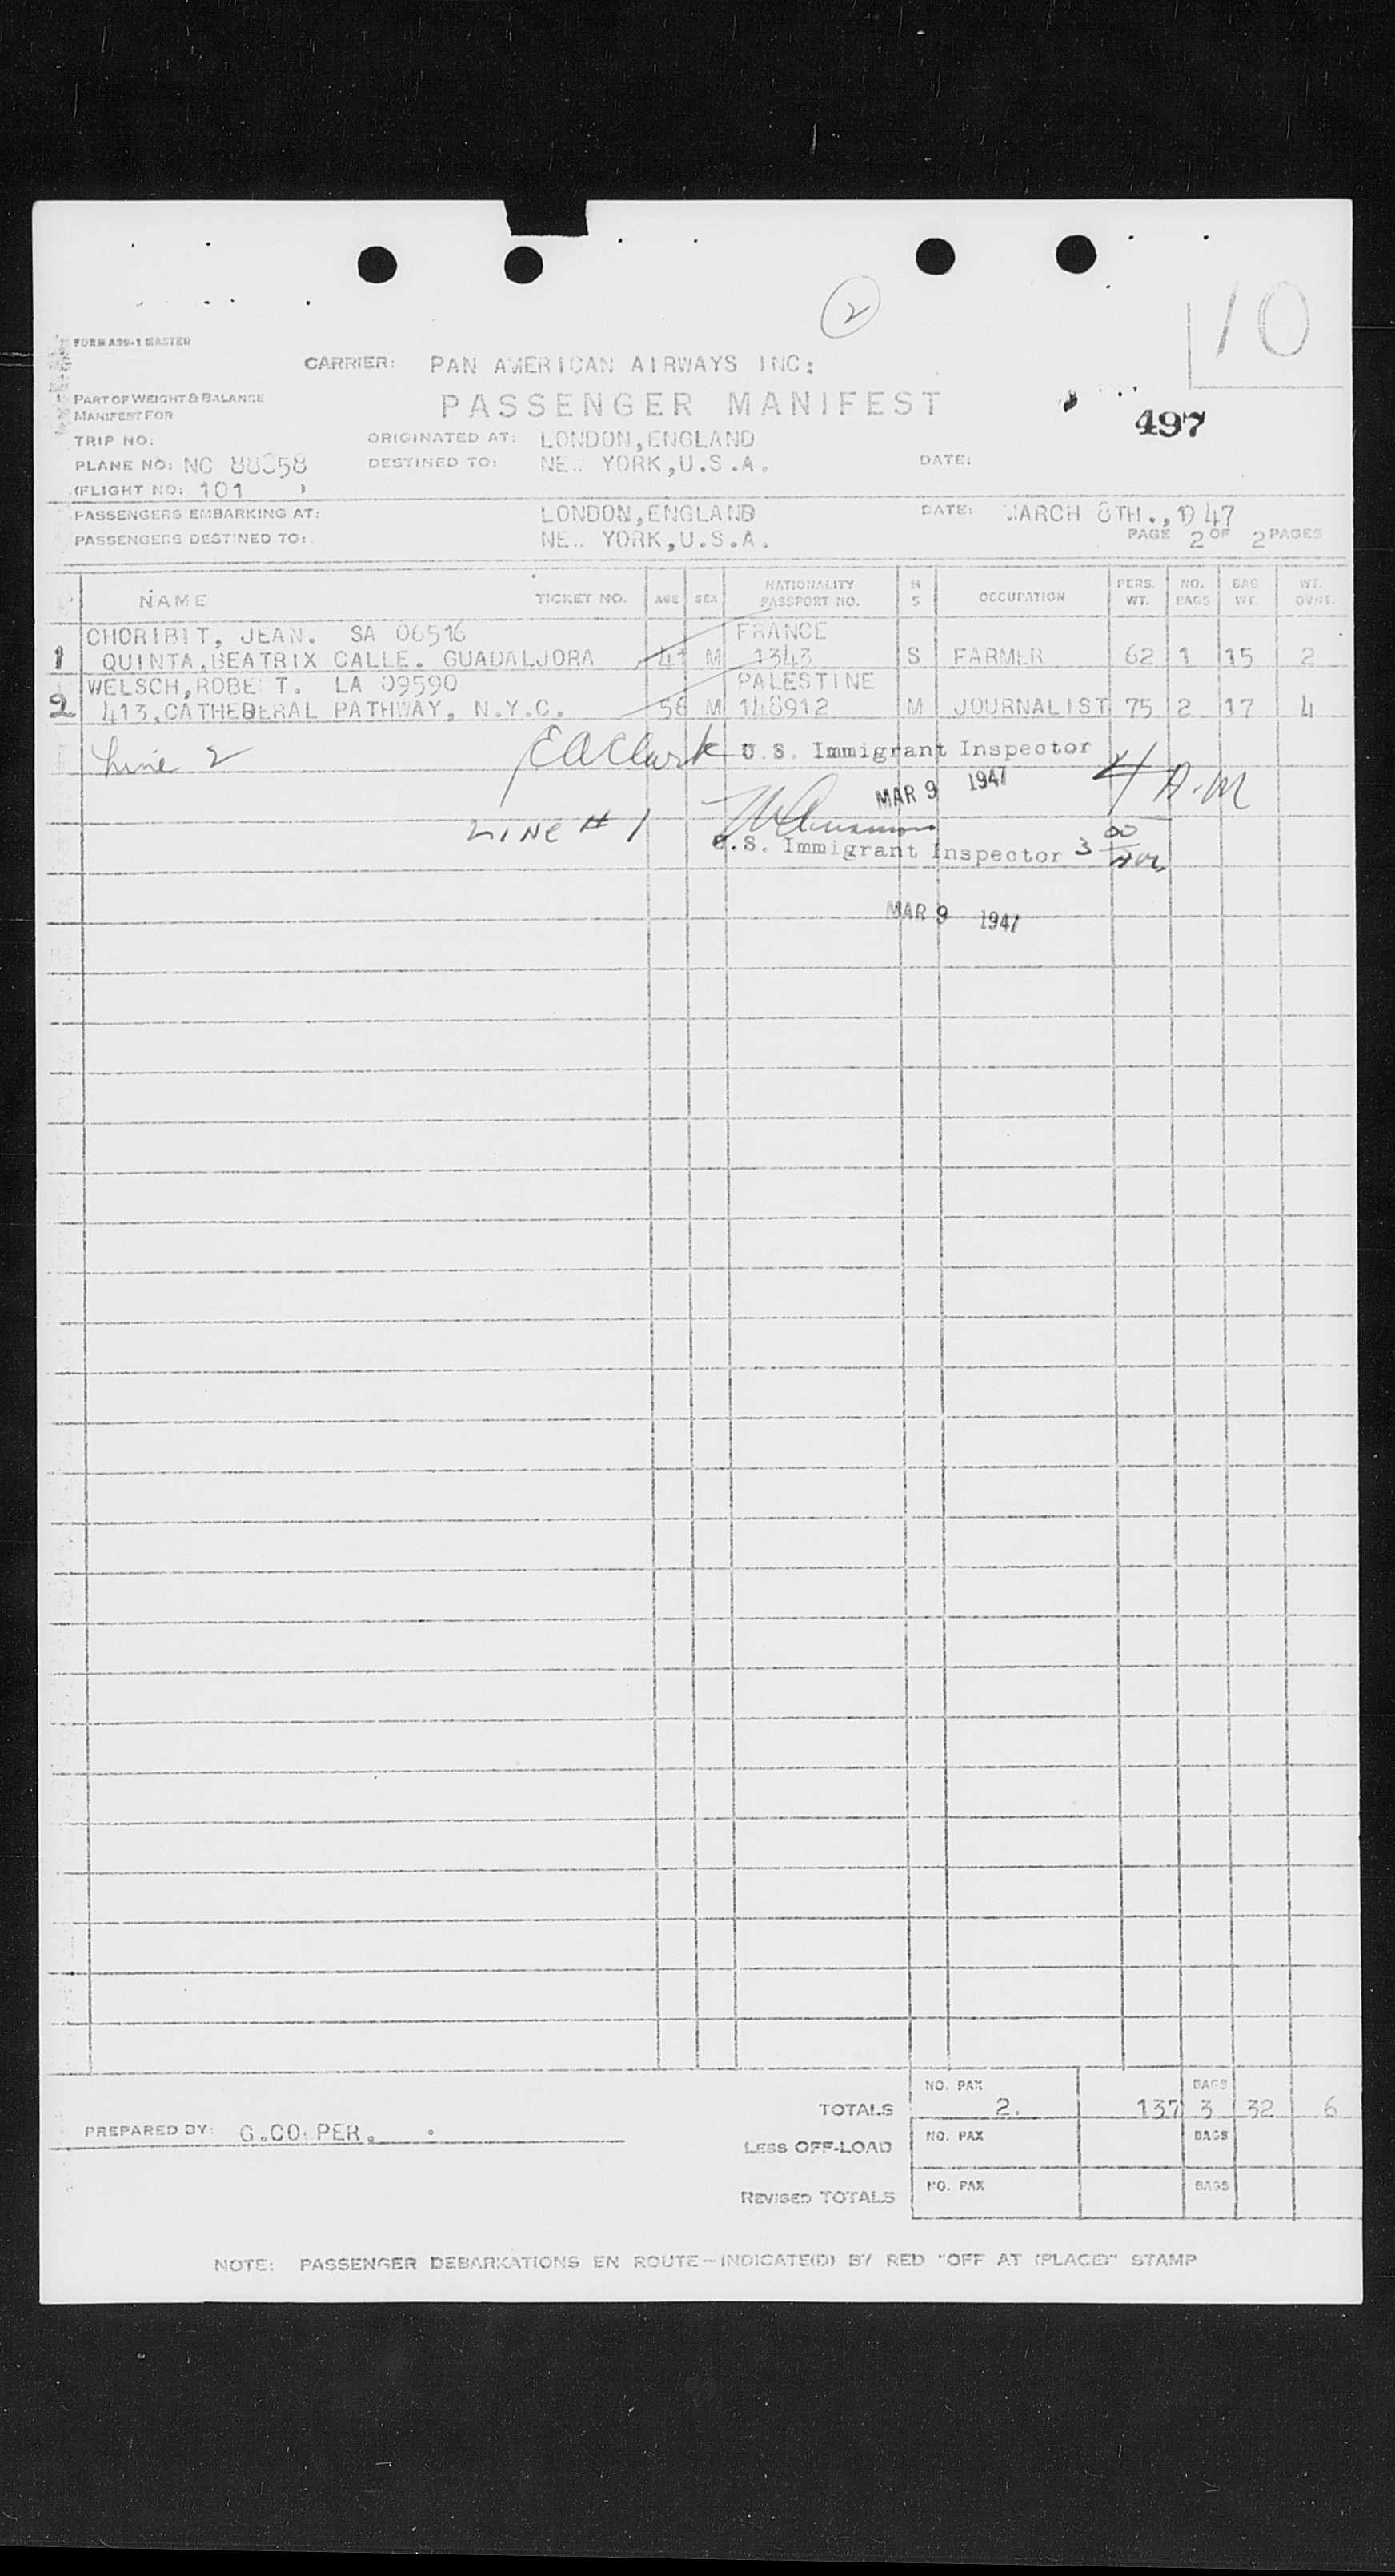 2
10
FORM A99-1 MASTER
CARRIER: PAN AMERICAN AIRWAYS INC:
PART OF WEIGHT & BALANCE
MANIFEST FOR
PASSENGER MANIFEST
497
TRIP NO:
ORIGINATED AT: LONDON, ENGLAND
PLANE NO: NC 88858
DESTINED TO: NE YORK, U.S.A.
DATE:
(FLIGHT NO: 101 )
PASSENGERS EMBARKING AT: LONDON, ENGLAND
DATE: MARCH 8TH., 1947
PASSENGERS DESTINED TO: NE YORK, U.S.A.
PAGE 2 OF 2 PAGES
NAME TICKET NO. AGE SEX NATIONALITY PASSPORT NO. M S OCCUPATION PERS. WT. NO. BAGS BAG WT. WT. OVHT.
CHORIBIT, JEAN. SA 06516 FRANCE
1 QUINTA, BEATRIX CALLE. GUADALJORA 41 M 1343 S FARMER 62 1 15 2
WELSCH, ROBE T. LA 09590 PALESTINE
2 413, CATHEDERAL PATHWAY, N.Y.C. 56 M 148912 M JOURNALIST 75 2 17 4
Line 2 E A Clark U.S. Immigrant Inspector
MAR 9 1947 4 A.M
LINE # 1
U.S. Immigrant Inspector 3 00 AM
MAR 9 1947
TOTALS NO. PAX 2. 137 BAGS 3 32 6
PREPARED BY: G.CO PER.
LESS OFF-LOAD NO. PAX BAGS
REVISED TOTALS NO. PAX BAGS
NOTE: PASSENGER DEBARKATIONS EN ROUTE-INDICATE(D) BY RED "OFF AT (PLACE)" STAMP